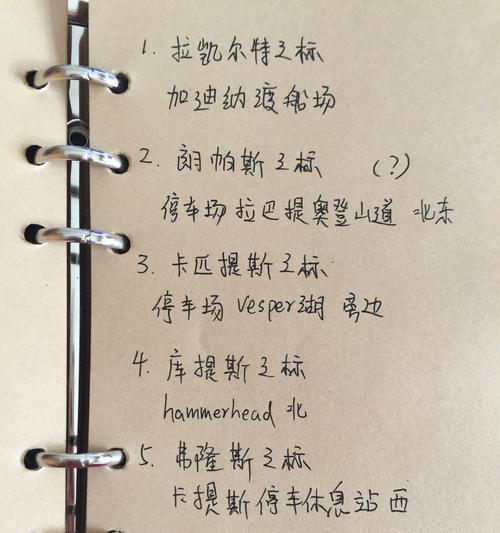 1. 拉凯尔特之标
加迪纳渡船场
2. 朗帕斯之标 (?)
停车场 拉巴提奥登山道 北东
3. 卡匹提斯之标
停车场 Vesper湖 旁边
4. 库提斯之标
hammerhead 北
5. 弗隆斯之标
卡提斯停车休息站 西